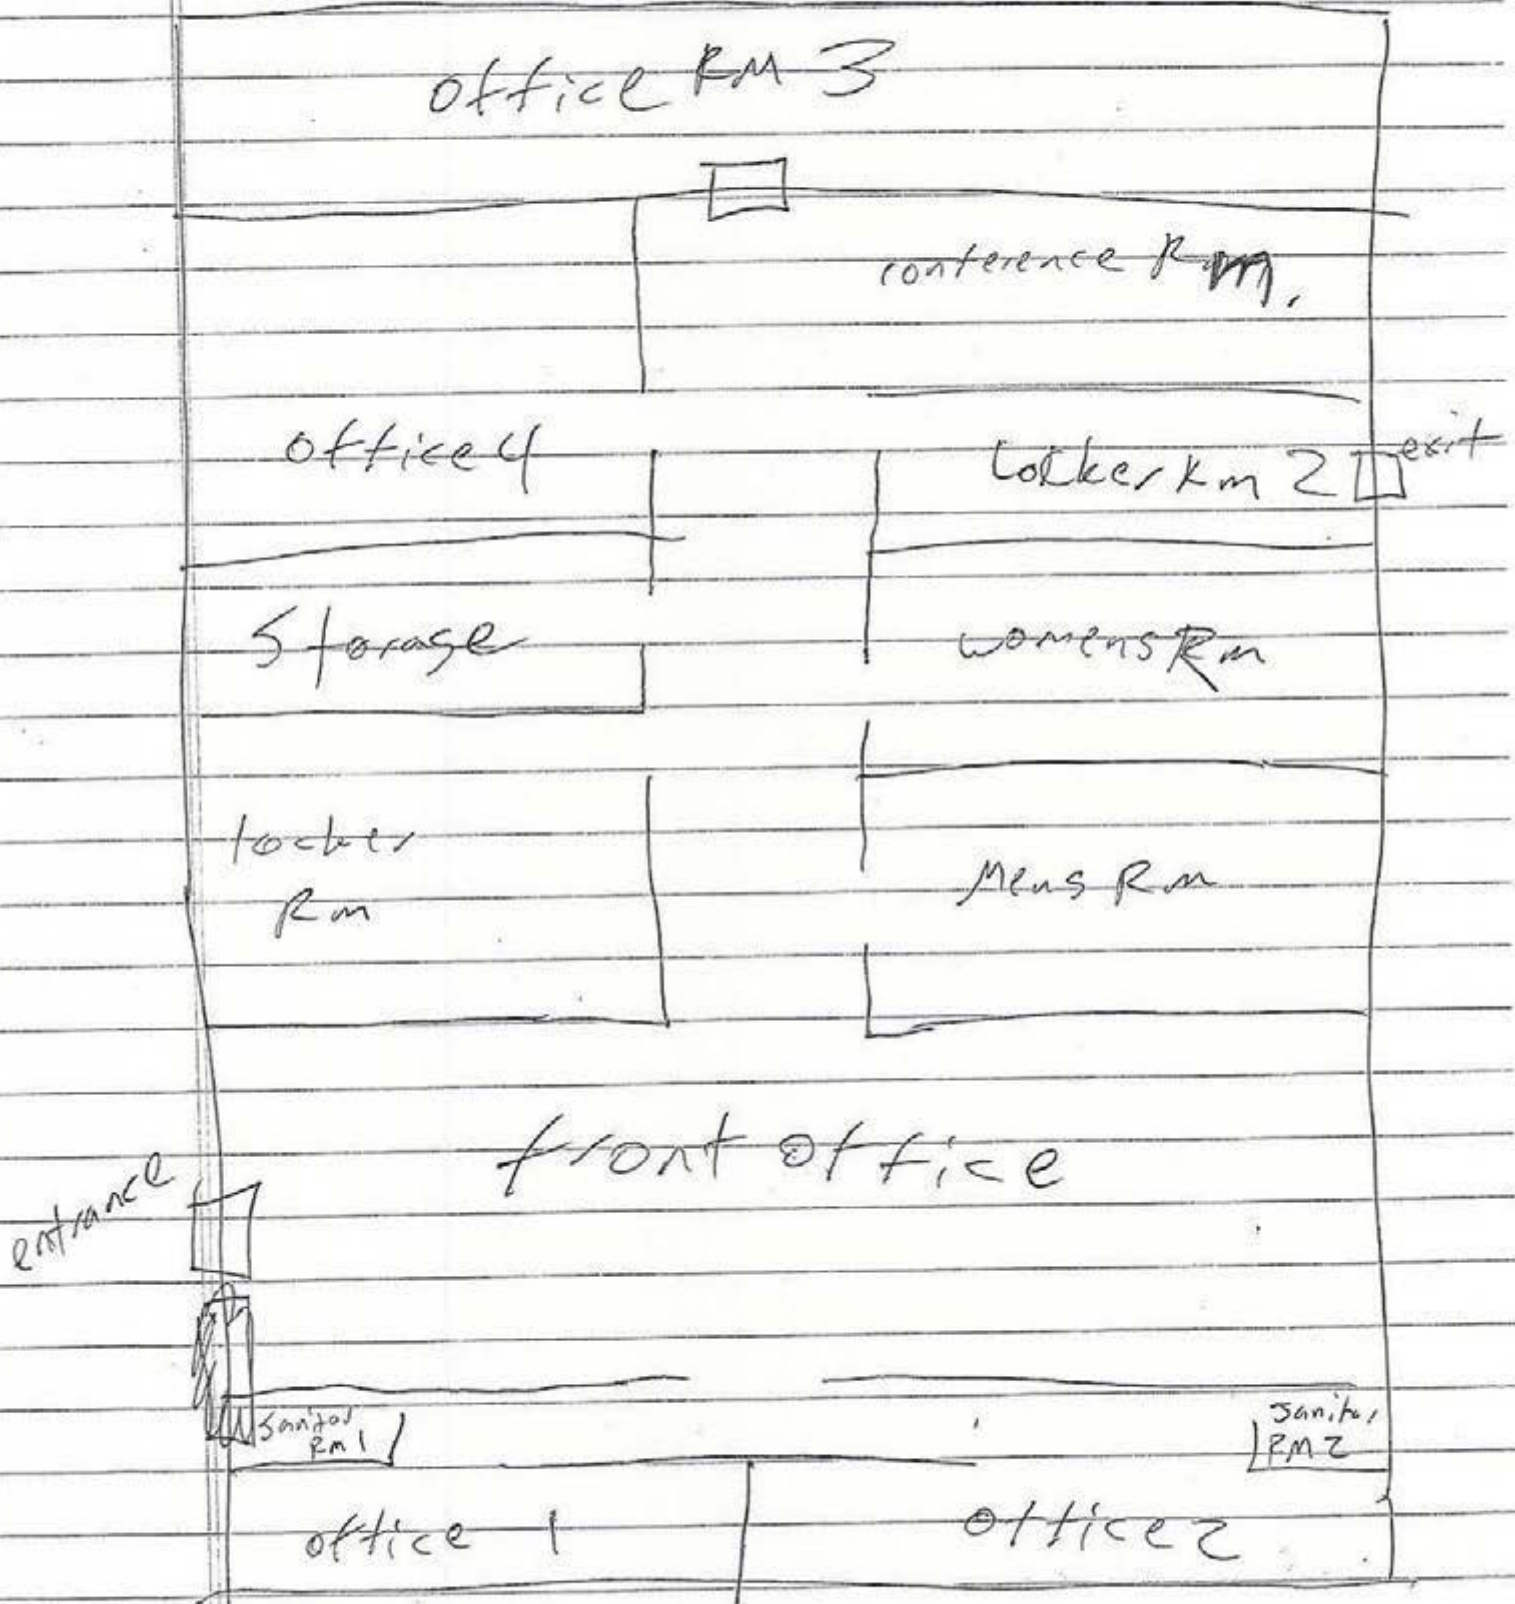 office RM 3
conference Rm.
office 4
Locker Rm 2
exit
Storage
womens Rm
locker
Rm
Mens Rm
front office
entrance
Janitor
Rm 1
Janitor
RM 2
office 1
office 2